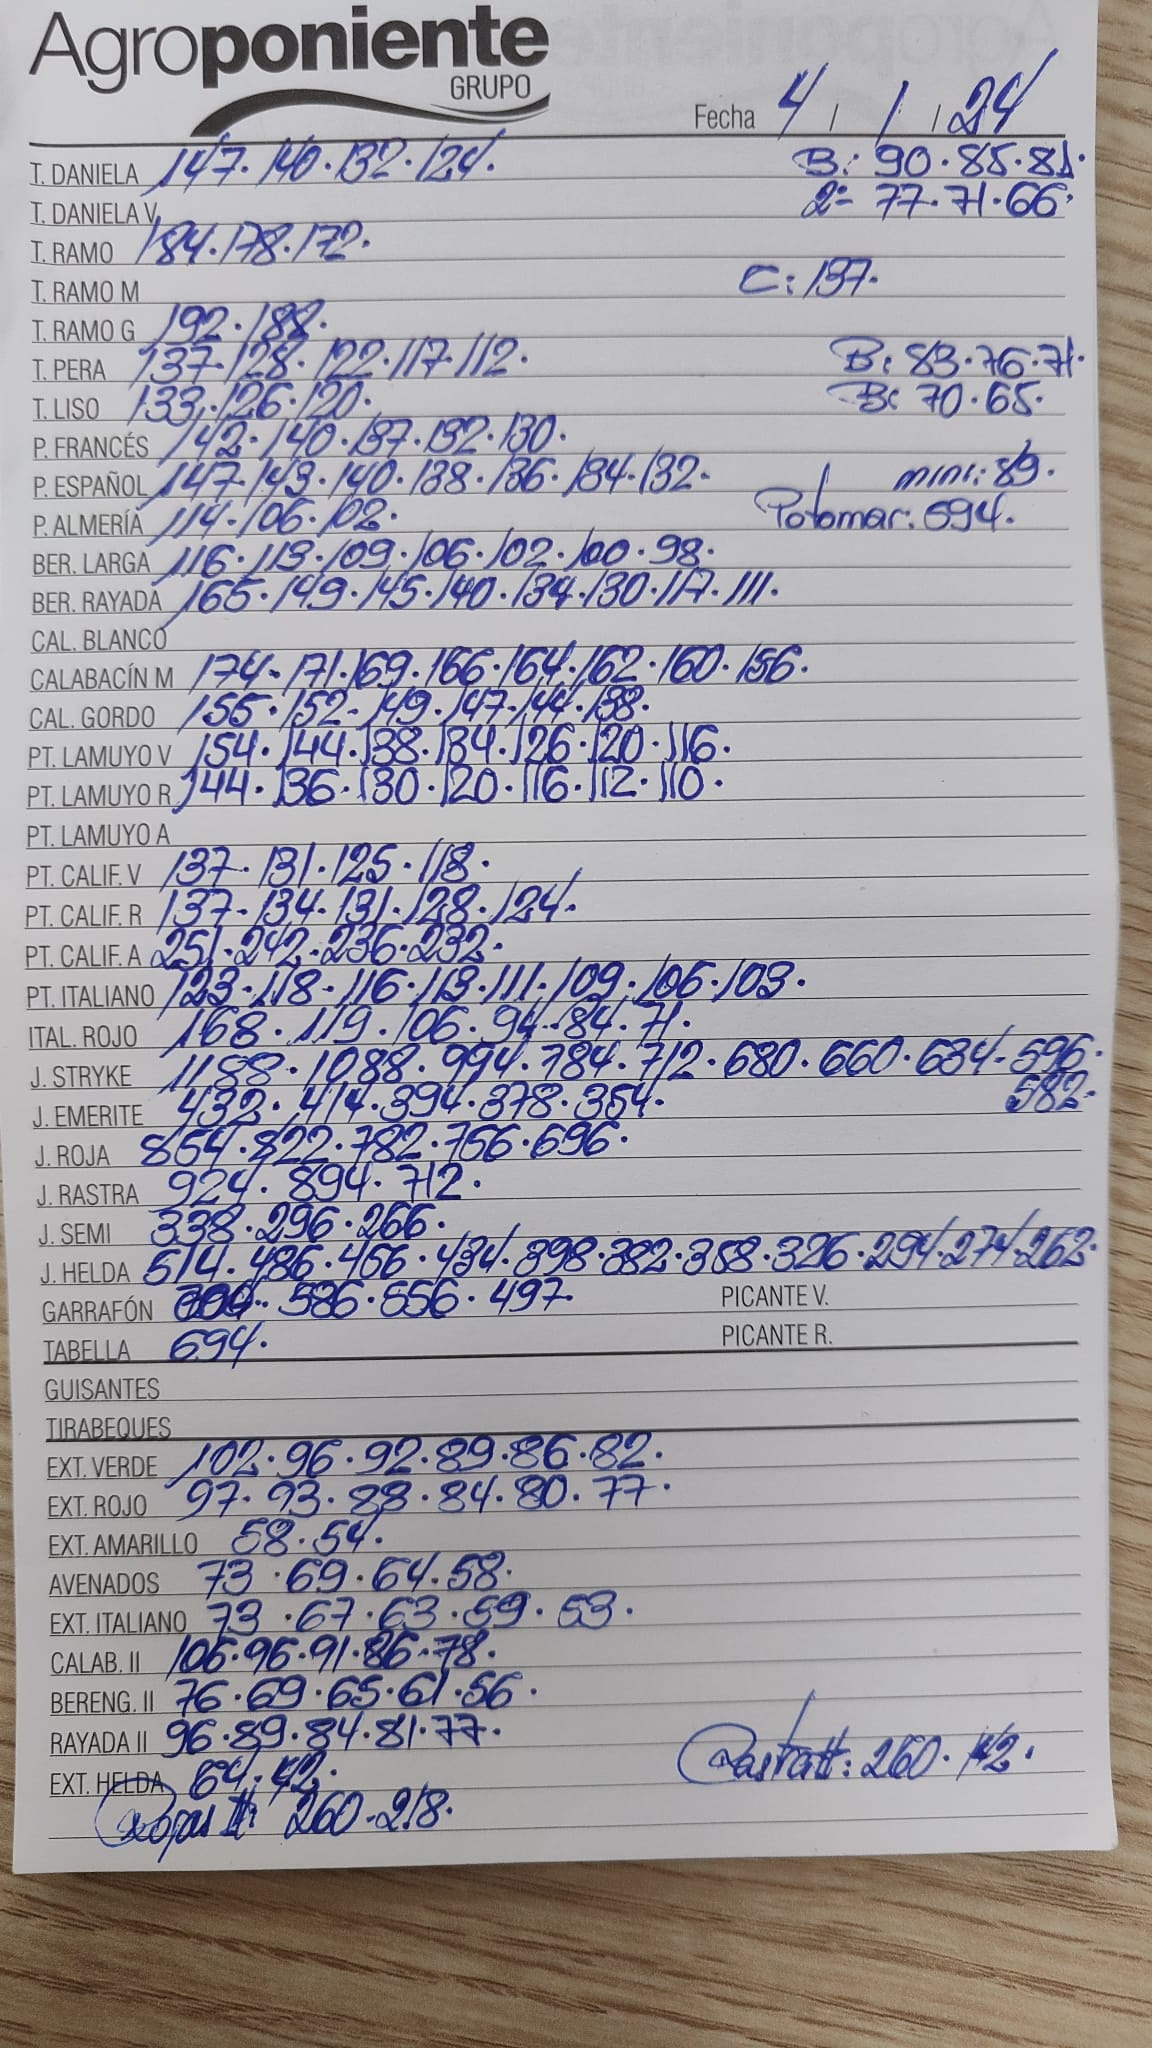 Agroponiente
GRUPO
Fecha 4 / 1 / 24
T. DANIELA 147. 140. 132. 124. B: 90. 85. 81.
T. DANIELA V 2ª 77. 71. 66.
T. RAMO 184. 178. 172.
T. RAMO M C: 137.
T. RAMO G 192. 188.
T. PERA 137. 128. 122. 117. 112. B: 83. 76. 71.
T. LISO 133. 126. 120. B: 70. 65.
P. FRANCÉS 142. 140. 137. 132. 130.
P. ESPAÑOL 147. 143. 140. 138. 136. 134. 132. mini: 89.
P. ALMERÍA 114. 106. 102. 594.
BER. LARGA 116. 113. 109. 106. 102. 100. 98.
BER. RAYADA 165. 149. 145. 140. 134. 130. 117. 111.
CAL. BLANCO
CALABACÍN M 174. 171. 169. 166. 164. 162. 160. 156.
CAL. GORDO 155. 152. 149. 147. 144. 138.
PT. LAMUYO V 154. 144. 138. 134. 126. 120. 116.
PT. LAMUYO R 144. 136. 130. 120. 116. 112. 110.
PT. LAMUYO A
PT. CALIF. V 137. 131. 125. 118.
PT. CALIF. R 137. 134. 131. 128. 124.
PT. CALIF. A 251. 242. 236. 232.
PT. ITALIANO 123. 118. 116. 113. 111. 109. 106. 103.
ITAL. ROJO 168. 119. 106. 94. 84. 71.
J. STRYKE 1188. 1088. 994. 784. 712. 680. 660. 634. 596.
582.
J. EMERITE 432. 414. 394. 378. 354.
J. ROJA 854. 822. 782. 756. 696.
J. RASTRA 924. 894. 712.
J. SEMI 338. 296. 266.
J. HELDA 514. 486. 456. 434. 398. 382. 358. 326. 294. 274. 262.
GARRAFÓN 586. 556. 497. PICANTE V.
TABELLA 694. PICANTE R.
GUISANTES
TIRABEQUES
EXT. VERDE 102. 96. 92. 89. 86. 82.
EXT. ROJO 97. 93. 88. 84. 80. 77.
EXT. AMARILLO 58. 54.
AVENADOS 73. 69. 64. 58.
EXT. ITALIANO 73. 67. 63. 59. 53.
CALAB. II 106. 96. 91. 86. 78.
BERENG. II 76. 69. 65. 61. 56.
RAYADA II 96. 89. 84. 81. 77.
EXT. HELDA 64. 42. 260. 142.
260. 218.